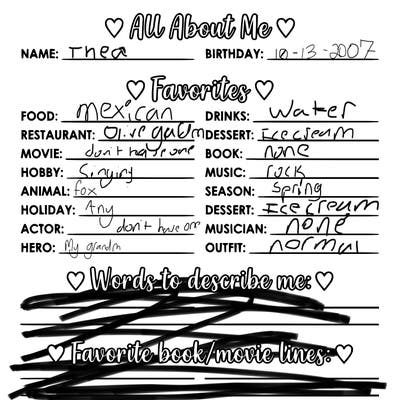 All About Me
NAME: Thea BIRTHDAY: 10-13-2007
Favorites
FOOD: mexican DRINKS: water
RESTAURANT: Olive gardn DESSERT: Icecream
MOVIE: don't have one BOOK: none
HOBBY: Singing MUSIC: rock
ANIMAL: fox SEASON: Spring
HOLIDAY: Any DESSERT: Icecream
ACTOR: don't have one MUSICIAN: none
HERO: My grandm OUTFIT: normal
Words to describe me:
Favorite book/movie lines: